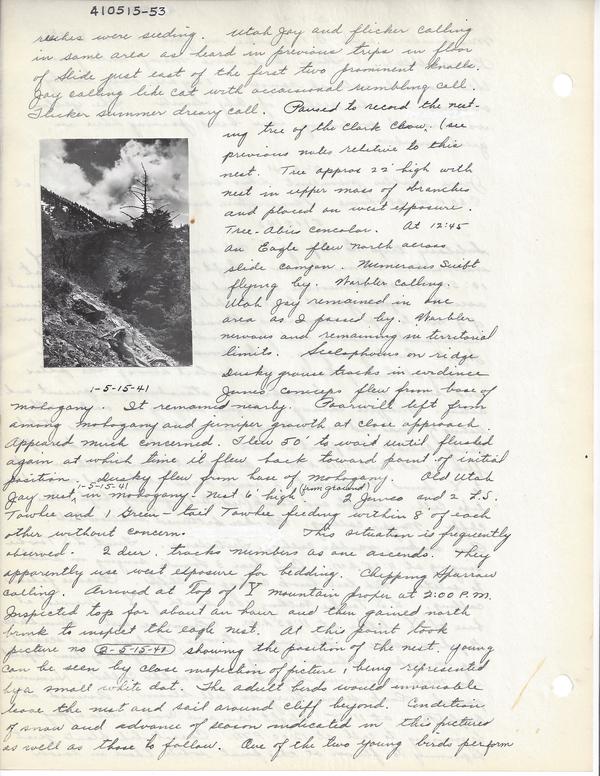 410515-53
reaches were seeding. Utah Jay and flicker calling
in same area as heard in previous trips in floor
of slide just east of the first two prominent knolls.
Jay calling like cat with occasional rumbling call.
Flicker summer dreary call. Paused to record the nest-
ing tree of the Clark Crow. (see
previous notes relative to this
nest. Tree approx 22' high with
nest in upper mass of branches
and placed on west exposure.
Tree - Abies concolor. At 12:45
an Eagle flew north across
slide canyon. Numerous Swift
flying by. Warbler calling.
Utah Jay remained in one
area as I passed by. Warbler
nervous and remaining in territorial
limits. Scelophorus on ridge
Dusky grouse tracks in evidence
Junco caniceps flew from base of
1-5-15-41
mohogany. It remained nearby. Poorwill left from
among mohogany and juniper growth at close approach.
Appeared much concerned. Flew 50' to waid until flushed
again at which time it flew back toward point of initial
position. Dusky flew from base of mohogany. Old Utah
1-5-15-41
Jay nest in mohogany. Nest 6' high (from ground) 2 Juncos and 2 F.S.
Towhee and 1 Green-tail Towhee feeding within 8' of each
other without concern. This situation is frequently
observed. 2 deer. tracks numbers as one ascends. They
apparently use west exposure for bedding. Chipping Sparrow
calling. Arrived at top of Y mountain proper at 2:00 P.M.
Inspected top for about an hour and then gained north
brink to inspect the eagle nest. At this point took
picture no 2-5-15-41 showing the position of the nest. young
can be seen by close inspection of picture, being represented
by a small white dot. The adult birds would invariable
leave the nest and sail around cliff beyond. Condition
of snow and advance of season indicated in this pictures
as well as those to follow. One of the two young birds perform